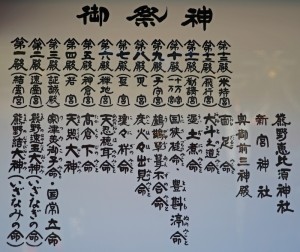 御祭神
熊野恵比須神社
新宮神社
奥御前三神殿
第十三殿(米持宮) 面足命
第十二殿(飛行宮) 大斗之道命
第十一殿(勧請宮) 泥土煮命
第十殿(十万宮) 国狭槌命・豊斟渟命
第九殿(子守宮) 鵜鶴草葺不合命
第八殿(児宮) 彦火々出見命
第七殿(聖宮) 瓊々杵命
第六殿(禅地宮) 天忍穂耳命
第五殿(神倉宮) 高倉下命
第四殿(若宮) 天照大神
第三殿(証誠殿) 家津美御子命・国常立命
第二殿(速玉宮) 熊野速玉大神(いざなぎの命)
第一殿(結霊宮) 熊野結大神(いざなみの命)